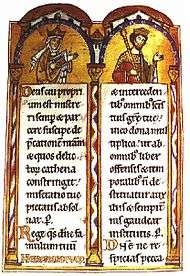 Deus cui propri
um est misere
ri semp & par
cere suscipe de
pcationē nr̄am
& quos delic
torū cathena
constringit
miseratio tue
pietatis
absoluat. P.
Rege q̄s dn̄e fa
mulum tuū
& intercedenti
bus omnib; scīs
tuis
in eo dona multi
plica. ut ab
omnibus liber
offensis & tem
poralib; n̄ de
stituatur
& sempiter
nis gaudeat
institutis. P.
ne re
spicias pecca